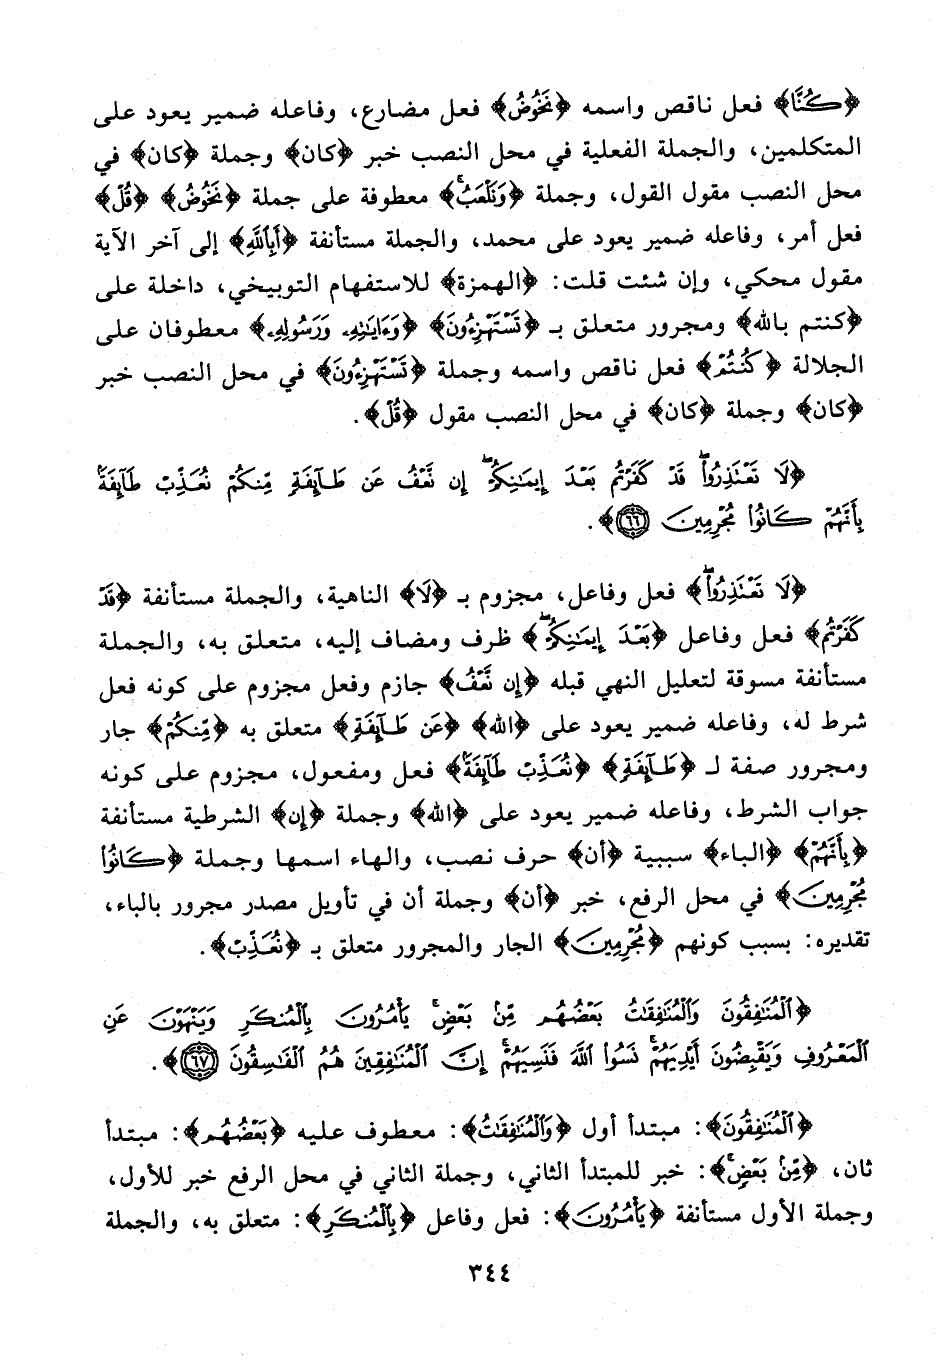 ﴿كُنَّا﴾ فعل ناقص واسمه ﴿نَخُوضُ﴾ فعل مضارع، وفاعله ضمير يعود على
المتكلمين، والجملة الفعلية في محل النصب خبر ﴿كان﴾ وجملة ﴿كان﴾ في
محل النصب مقول القول، وجملة ﴿وَنَلْعَبُ﴾ معطوفة على جملة ﴿نَخُوضُ﴾ ﴿قُلْ﴾
فعل أمر، وفاعله ضمير يعود على محمد، والجملة مستأنفة ﴿أَبِاللَّهِ﴾ إلى آخر الآية
مقول محكي، وإن شئت قلت: ﴿الهمزة﴾ للاستفهام التوبيخي، داخلة على
﴿كنتم بالله﴾ ومجرور متعلق بـ ﴿تَسْتَهْزِءُونَ﴾ ﴿وَءَايَٰتِهِۦ وَرَسُولِهِۦ﴾ معطوفان على
الجلالة ﴿كُنتُمْ﴾ فعل ناقص واسمه وجملة ﴿تَسْتَهْزِءُونَ﴾ في محل النصب خبر
﴿كان﴾ وجملة ﴿كان﴾ في محل النصب مقول ﴿قُلْ﴾.
﴿لَا تَعْتَذِرُوا۟ ۖ قَدْ كَفَرْتُم بَعْدَ إِيمَٰنِكُمْ ۖ إِن نَّعْفُ عَن طَآئِفَةٍ مِّنكُمْ نُعَذِّبْ طَآئِفَةًۢ
بِأَنَّهُمْ كَانُوا۟ مُجْرِمِينَ ٦٦﴾.
﴿لَا تَعْتَذِرُوا۟ ۖ﴾ فعل وفاعل، مجزوم بـ ﴿لَا﴾ الناهية، والجملة مستأنفة ﴿قَدْ
كَفَرْتُم﴾ فعل وفاعل ﴿بَعْدَ إِيمَٰنِكُمْ ۖ﴾ ظرف ومضاف إليه، متعلق به، والجملة
مستأنفة مسوقة لتعليل النهي قبله ﴿إِن نَّعْفُ﴾ جازم وفعل مجزوم على كونه فعل
شرط له، وفاعله ضمير يعود على ﴿الله﴾ ﴿عَن طَآئِفَةٍ﴾ متعلق به ﴿مِّنكُمْ﴾ جار
ومجرور صفة لـ ﴿طَآئِفَةٍ﴾ ﴿نُعَذِّبْ طَآئِفَةًۢ﴾ فعل ومفعول، مجزوم على كونه
جواب الشرط، وفاعله ضمير يعود على ﴿الله﴾ وجملة ﴿إن﴾ الشرطية مستأنفة
﴿بِأَنَّهُمْ﴾ ﴿الباء﴾ سببية ﴿أن﴾ حرف نصب، والهاء اسمها وجملة ﴿كَانُوا۟
مُجْرِمِينَ﴾ في محل الرفع، خبر ﴿أن﴾ وجملة أن في تأويل مصدر مجرور بالباء،
تقديره: بسبب كونهم ﴿مُجْرِمِينَ﴾ الجار والمجرور متعلق بـ ﴿نُعَذِّبْ﴾.
﴿ٱلْمُنَٰفِقُونَ وَٱلْمُنَٰفِقَٰتُ بَعْضُهُم مِّنۢ بَعْضٍ ۚ يَأْمُرُونَ بِٱلْمُنكَرِ وَيَنْهَوْنَ عَنِ
ٱلْمَعْرُوفِ وَيَقْبِضُونَ أَيْدِيَهُمْ ۚ نَسُوا۟ ٱللَّهَ فَنَسِيَهُمْ ۗ إِنَّ ٱلْمُنَٰفِقِينَ هُمُ ٱلْفَٰسِقُونَ ٦٧﴾.
﴿ٱلْمُنَٰفِقُونَ﴾: مبتدأ أول ﴿وَٱلْمُنَٰفِقَٰتُ﴾: معطوف عليه ﴿بَعْضُهُم﴾: مبتدأ
ثان، ﴿مِّنۢ بَعْضٍ ۚ﴾: خبر للمبتدأ الثاني، وجملة الثاني في محل الرفع خبر للأول،
وجملة الأول مستأنفة ﴿يَأْمُرُونَ﴾: فعل وفاعل ﴿بِٱلْمُنكَرِ﴾: متعلق به، والجملة
٣٤٤